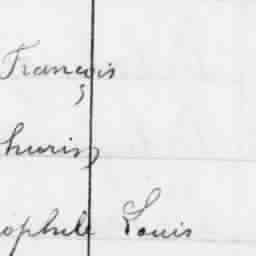 François
hurin
ophile Louis